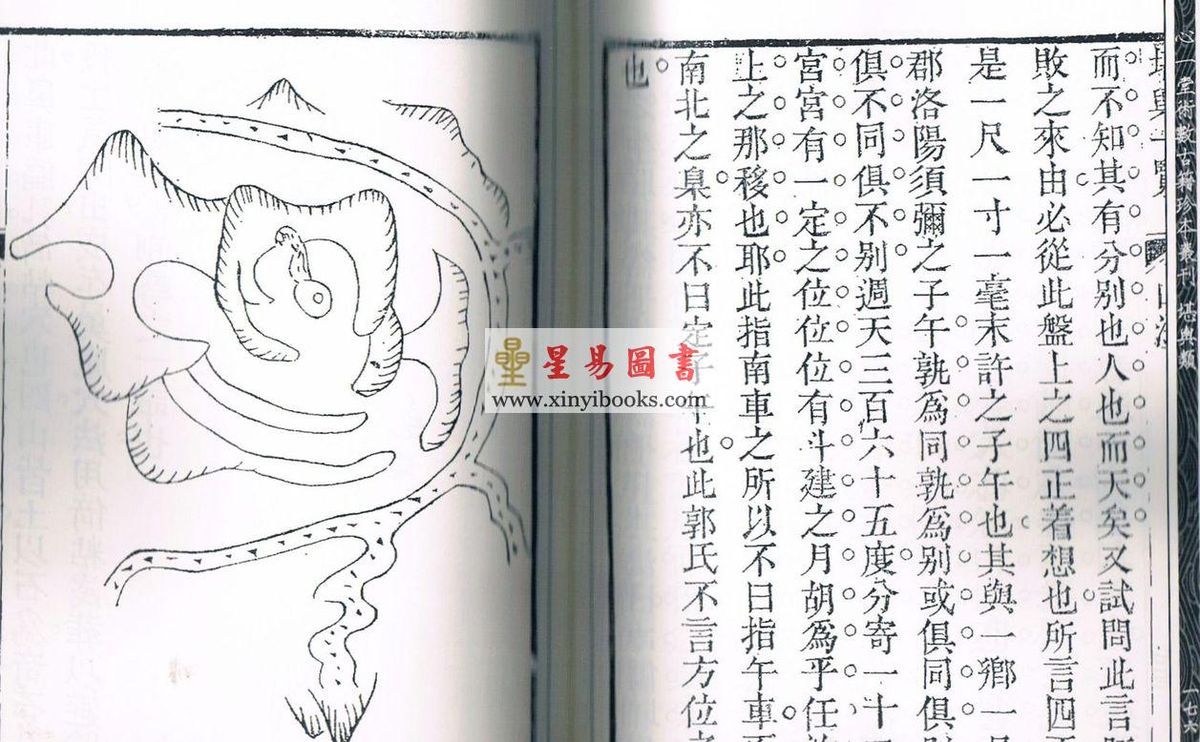 心一堂術數古籍珍本叢刊 堪輿類 一七六
而不知其有分別也人也而天矣又試問此言
敗之來由必從此盤上之四正着想也所言四
是一尺一寸一毫末許之子午也其與一鄉一
郡洛陽須彌之子午孰爲同孰爲別或俱同俱
俱不同俱不別週天三百六十五度分寄一十
宮宮有一定之位位位有斗建之月胡爲乎任
上之那移也耶此指南車之所以不曰指午車
南北之臬亦不曰定子午也此郭氏不言方位
也
星易圖書
www.xinyibooks.com